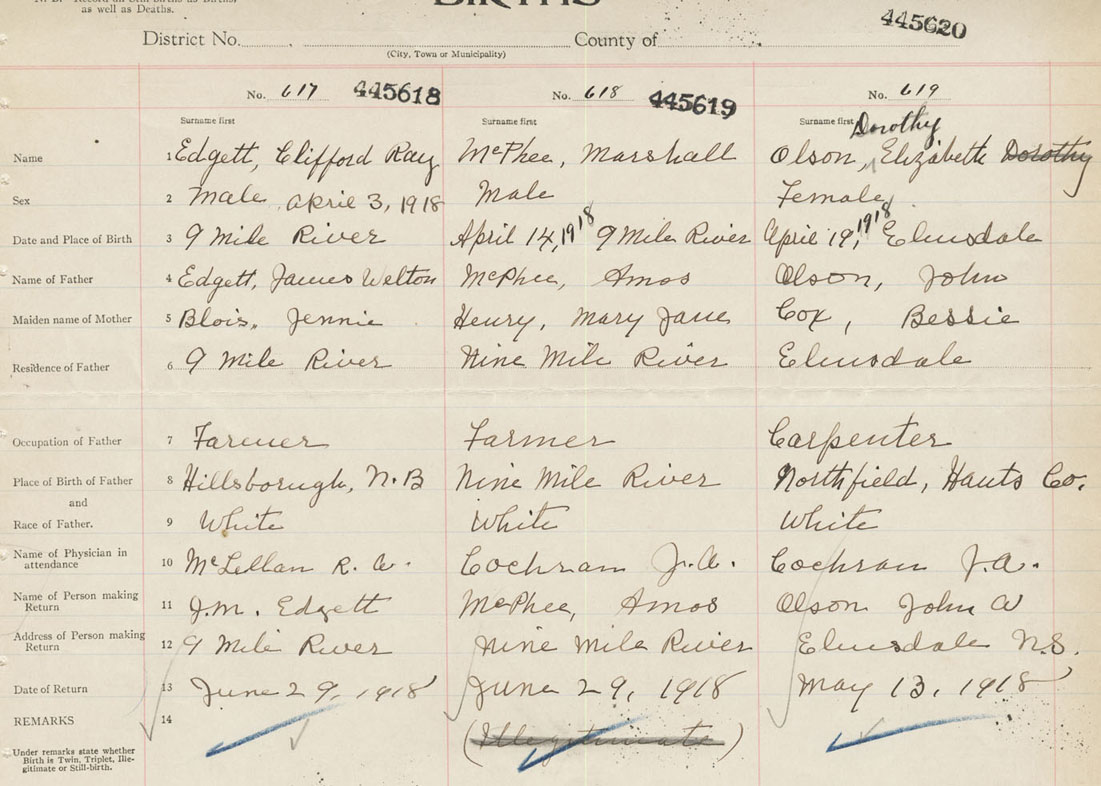 as well as Deaths.
BIRTHS
District No. County of
(City, Town or Municipality)
445620
No. 617 445618 No. 618 445619 No. 619
Surname first Surname first Surname first Dorothy
Name 1 Edgett, Clifford Ray McPhee, Marshall Olson, Elizabeth Dorothy
Sex 2 Male April 3, 1918 Male Female
Date and Place of Birth 3 9 Mile River April 14, 1918 9 Mile River April 19, 1918 Elmsdale
Name of Father 4 Edgett, James Welton McPhee, Amos Olson, John
Maiden name of Mother 5 Blois, Jennie Henry, Mary Jane Cox, Bessie
Residence of Father 6 9 Mile River Nine Mile River Elmsdale
Occupation of Father 7 Farmer Farmer Carpenter
Place of Birth of Father 8 Hillsborough, N.B Nine Mile River Northfield, Hants Co.
and
Race of Father. 9 White White White
Name of Physician in
attendance 10 McLellan R. A. Cochran J.A. Cochran J.A.
Name of Person making
Return 11 J.M. Edgett McPhee, Amos Olson John W
Address of Person making
Return 12 9 Mile River Nine Mile River Elmsdale N.S.
Date of Return 13 June 29, 1918 June 29, 1918 May 13, 1918
REMARKS 14 (Illegitimate)
Under remarks state whether
Birth is Twin, Triplet, Ille-
gitimate or Still-birth.